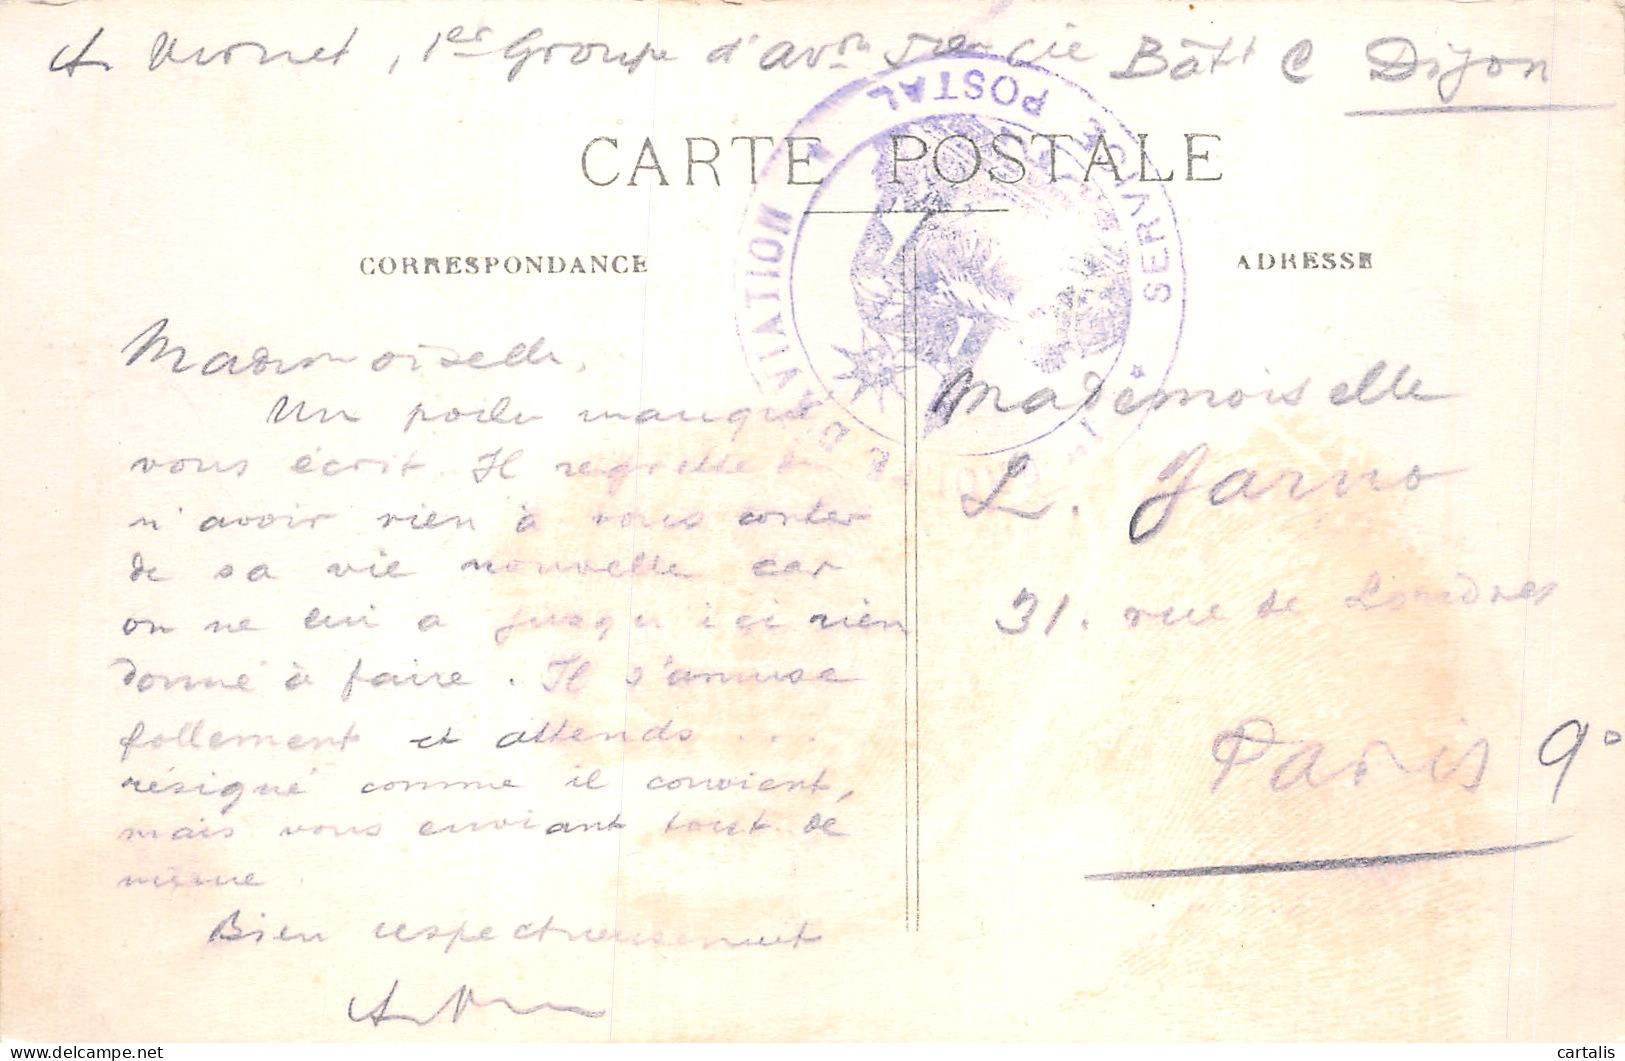 A. Vionet, 1er Groupe d'avon Cie Bâtt C Dijon
CARTE POSTALE
SERVICE POSTAL
AVIATION
CORRESPONDANCE
ADRESSE
Mademoiselle,
Un poilu manqué
vous écrit. Il regrette de
n'avoir rien à vous conter
de sa vie nouvelle car
on ne lui a jusqu'ici rien
donné à faire. Il s'amuse
follement et attends...
résigné comme il convient,
mais vous enviant tout de
même
Bien respectueusement
Mademoiselle
L. Jarno
31. rue de Londres
Paris 9e
cartalis
delcampe.net